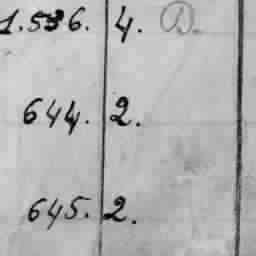 1.536. 4. D.
644. 2.
645. 2.